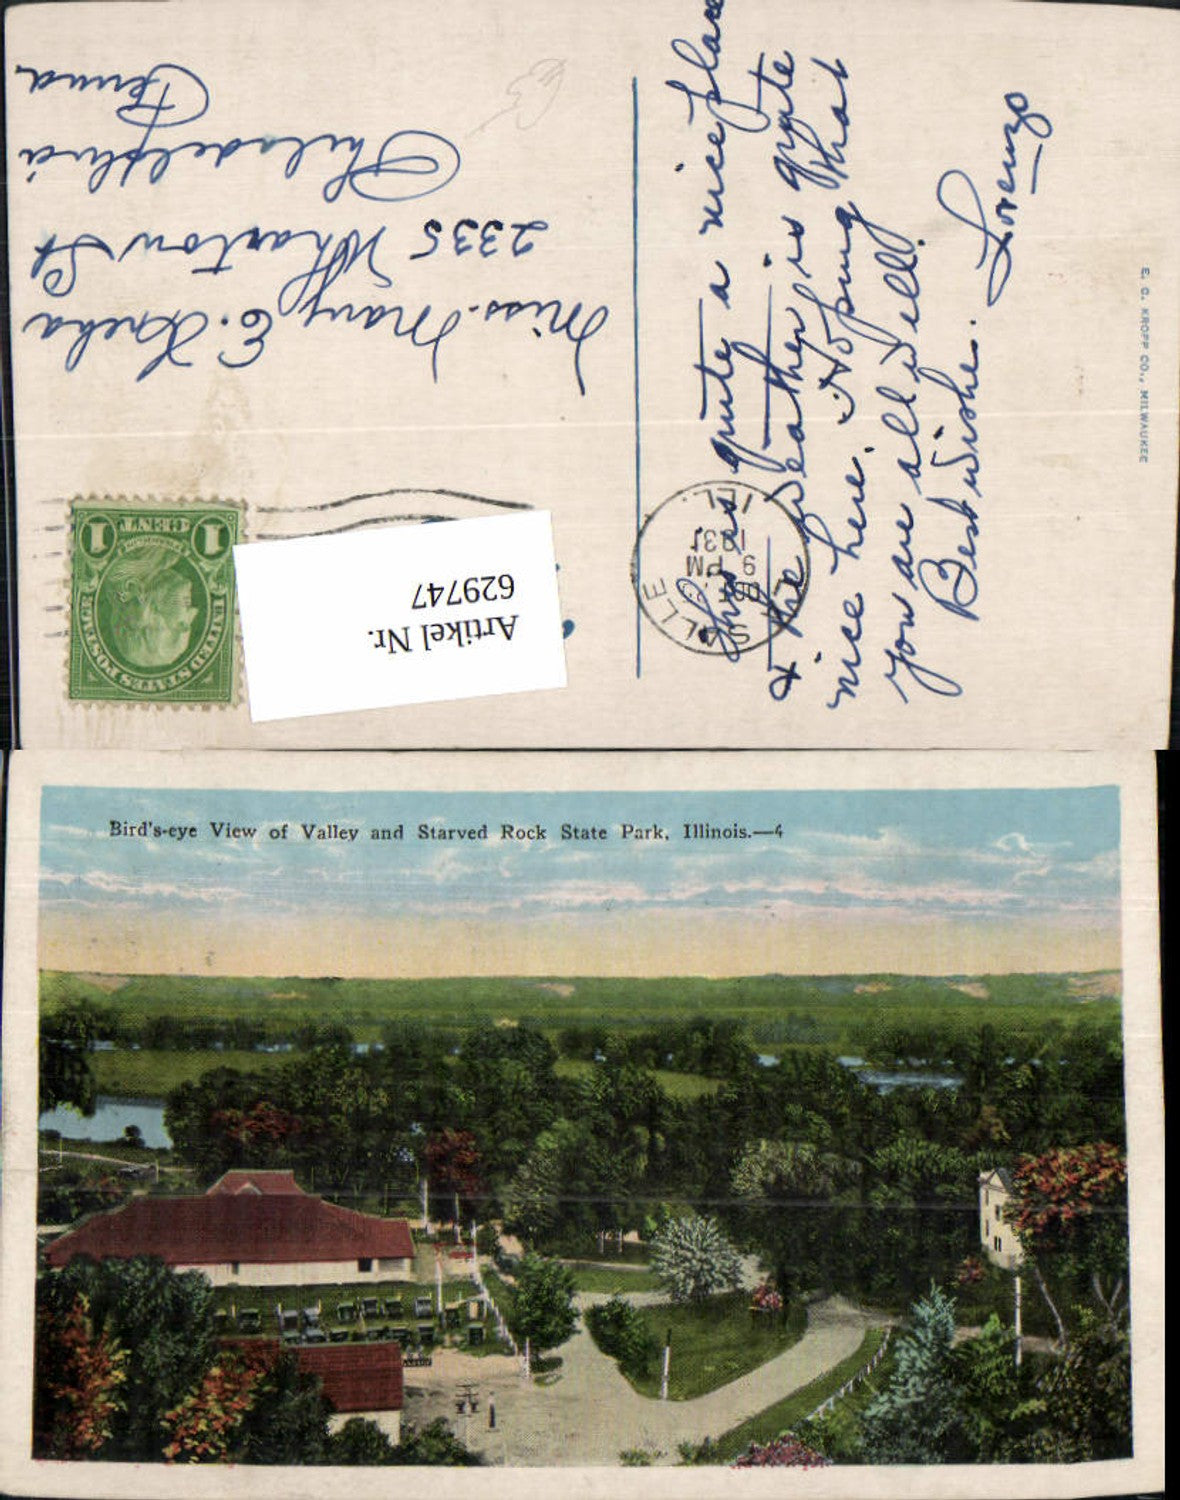 This is quite a nice place
& the Weather is quite
nice here. Hoping that
you are all well.
Best Wishe.
Lorenzo
E. C. KROPP CO., MILWAUKEE
LA SALLE
9 PM
1931
ILL.
1 CENT 1
UNITED STATES POSTAGE
Miss. Mary E.
2335 Wharton St
Philadelphia
Penna.
Artikel Nr.
629747
Bird's-eye View of Valley and Starved Rock State Park, Illinois.—4